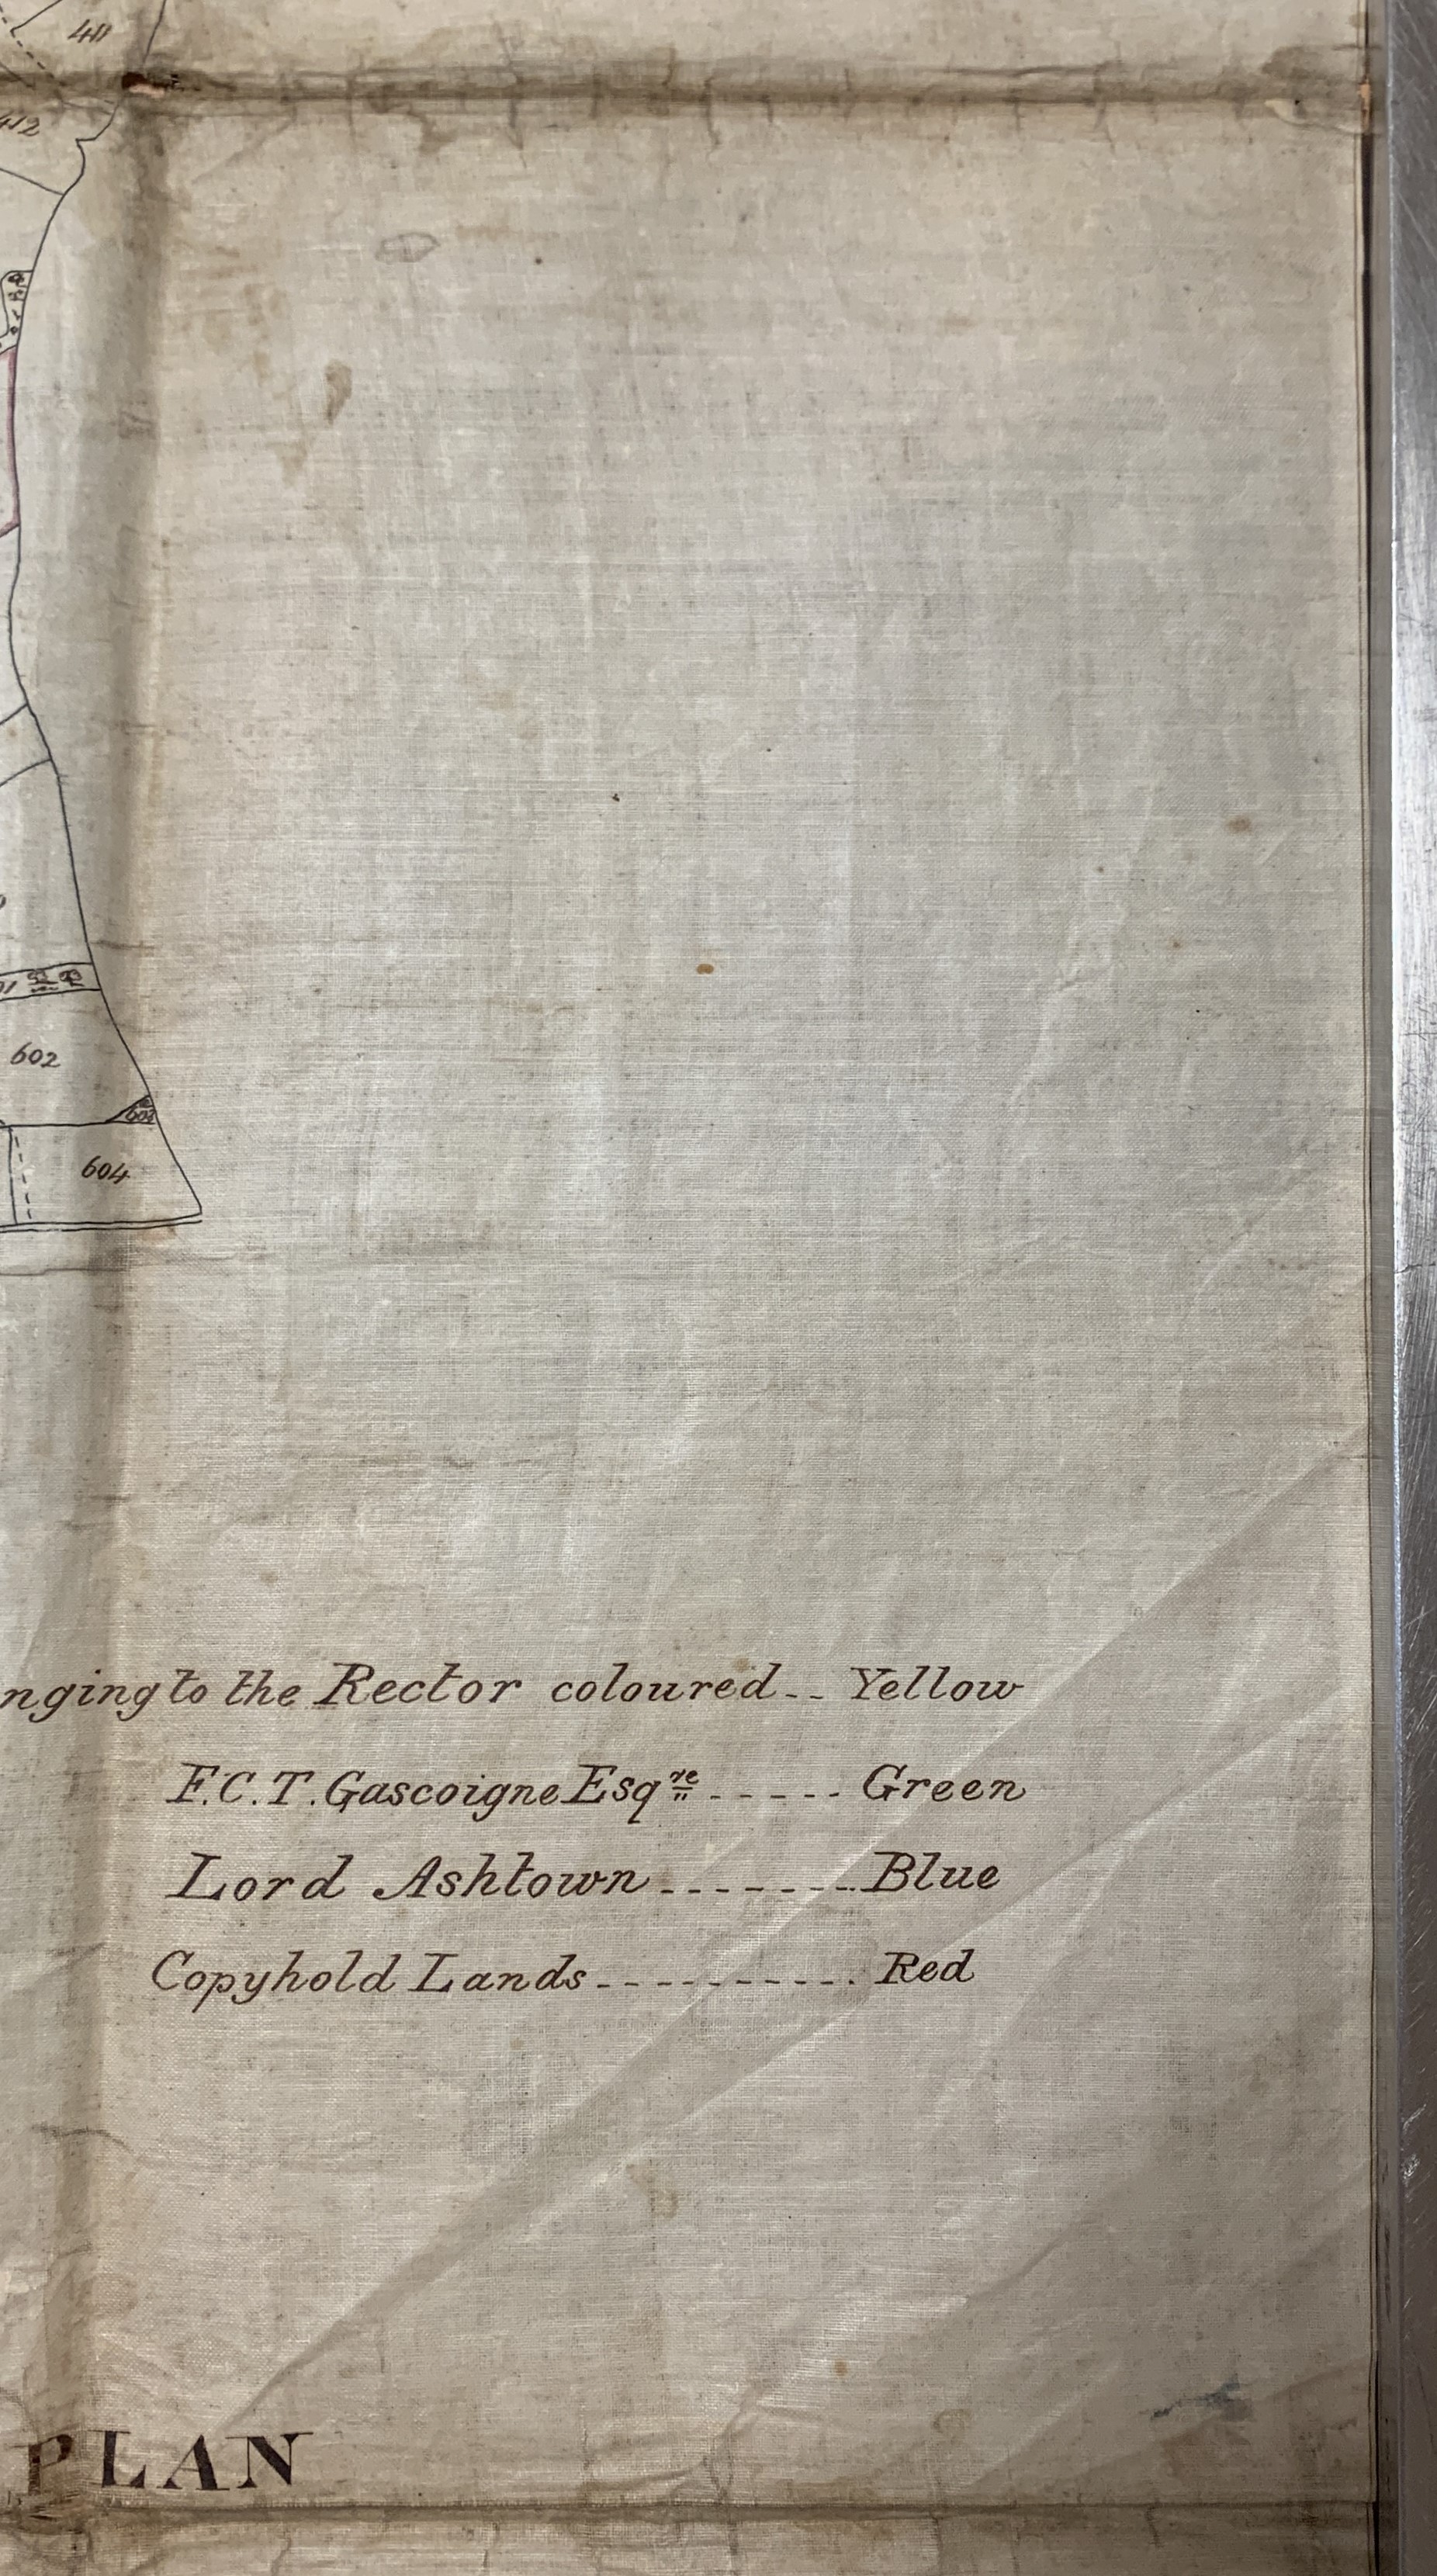 411
412
602
603
604
nging to the Rector coloured -- Yellow
F.C.T. Gascoigne Esqre ----- Green
Lord Ashtown ------- Blue
Copyhold Lands ---------- Red
PLAN